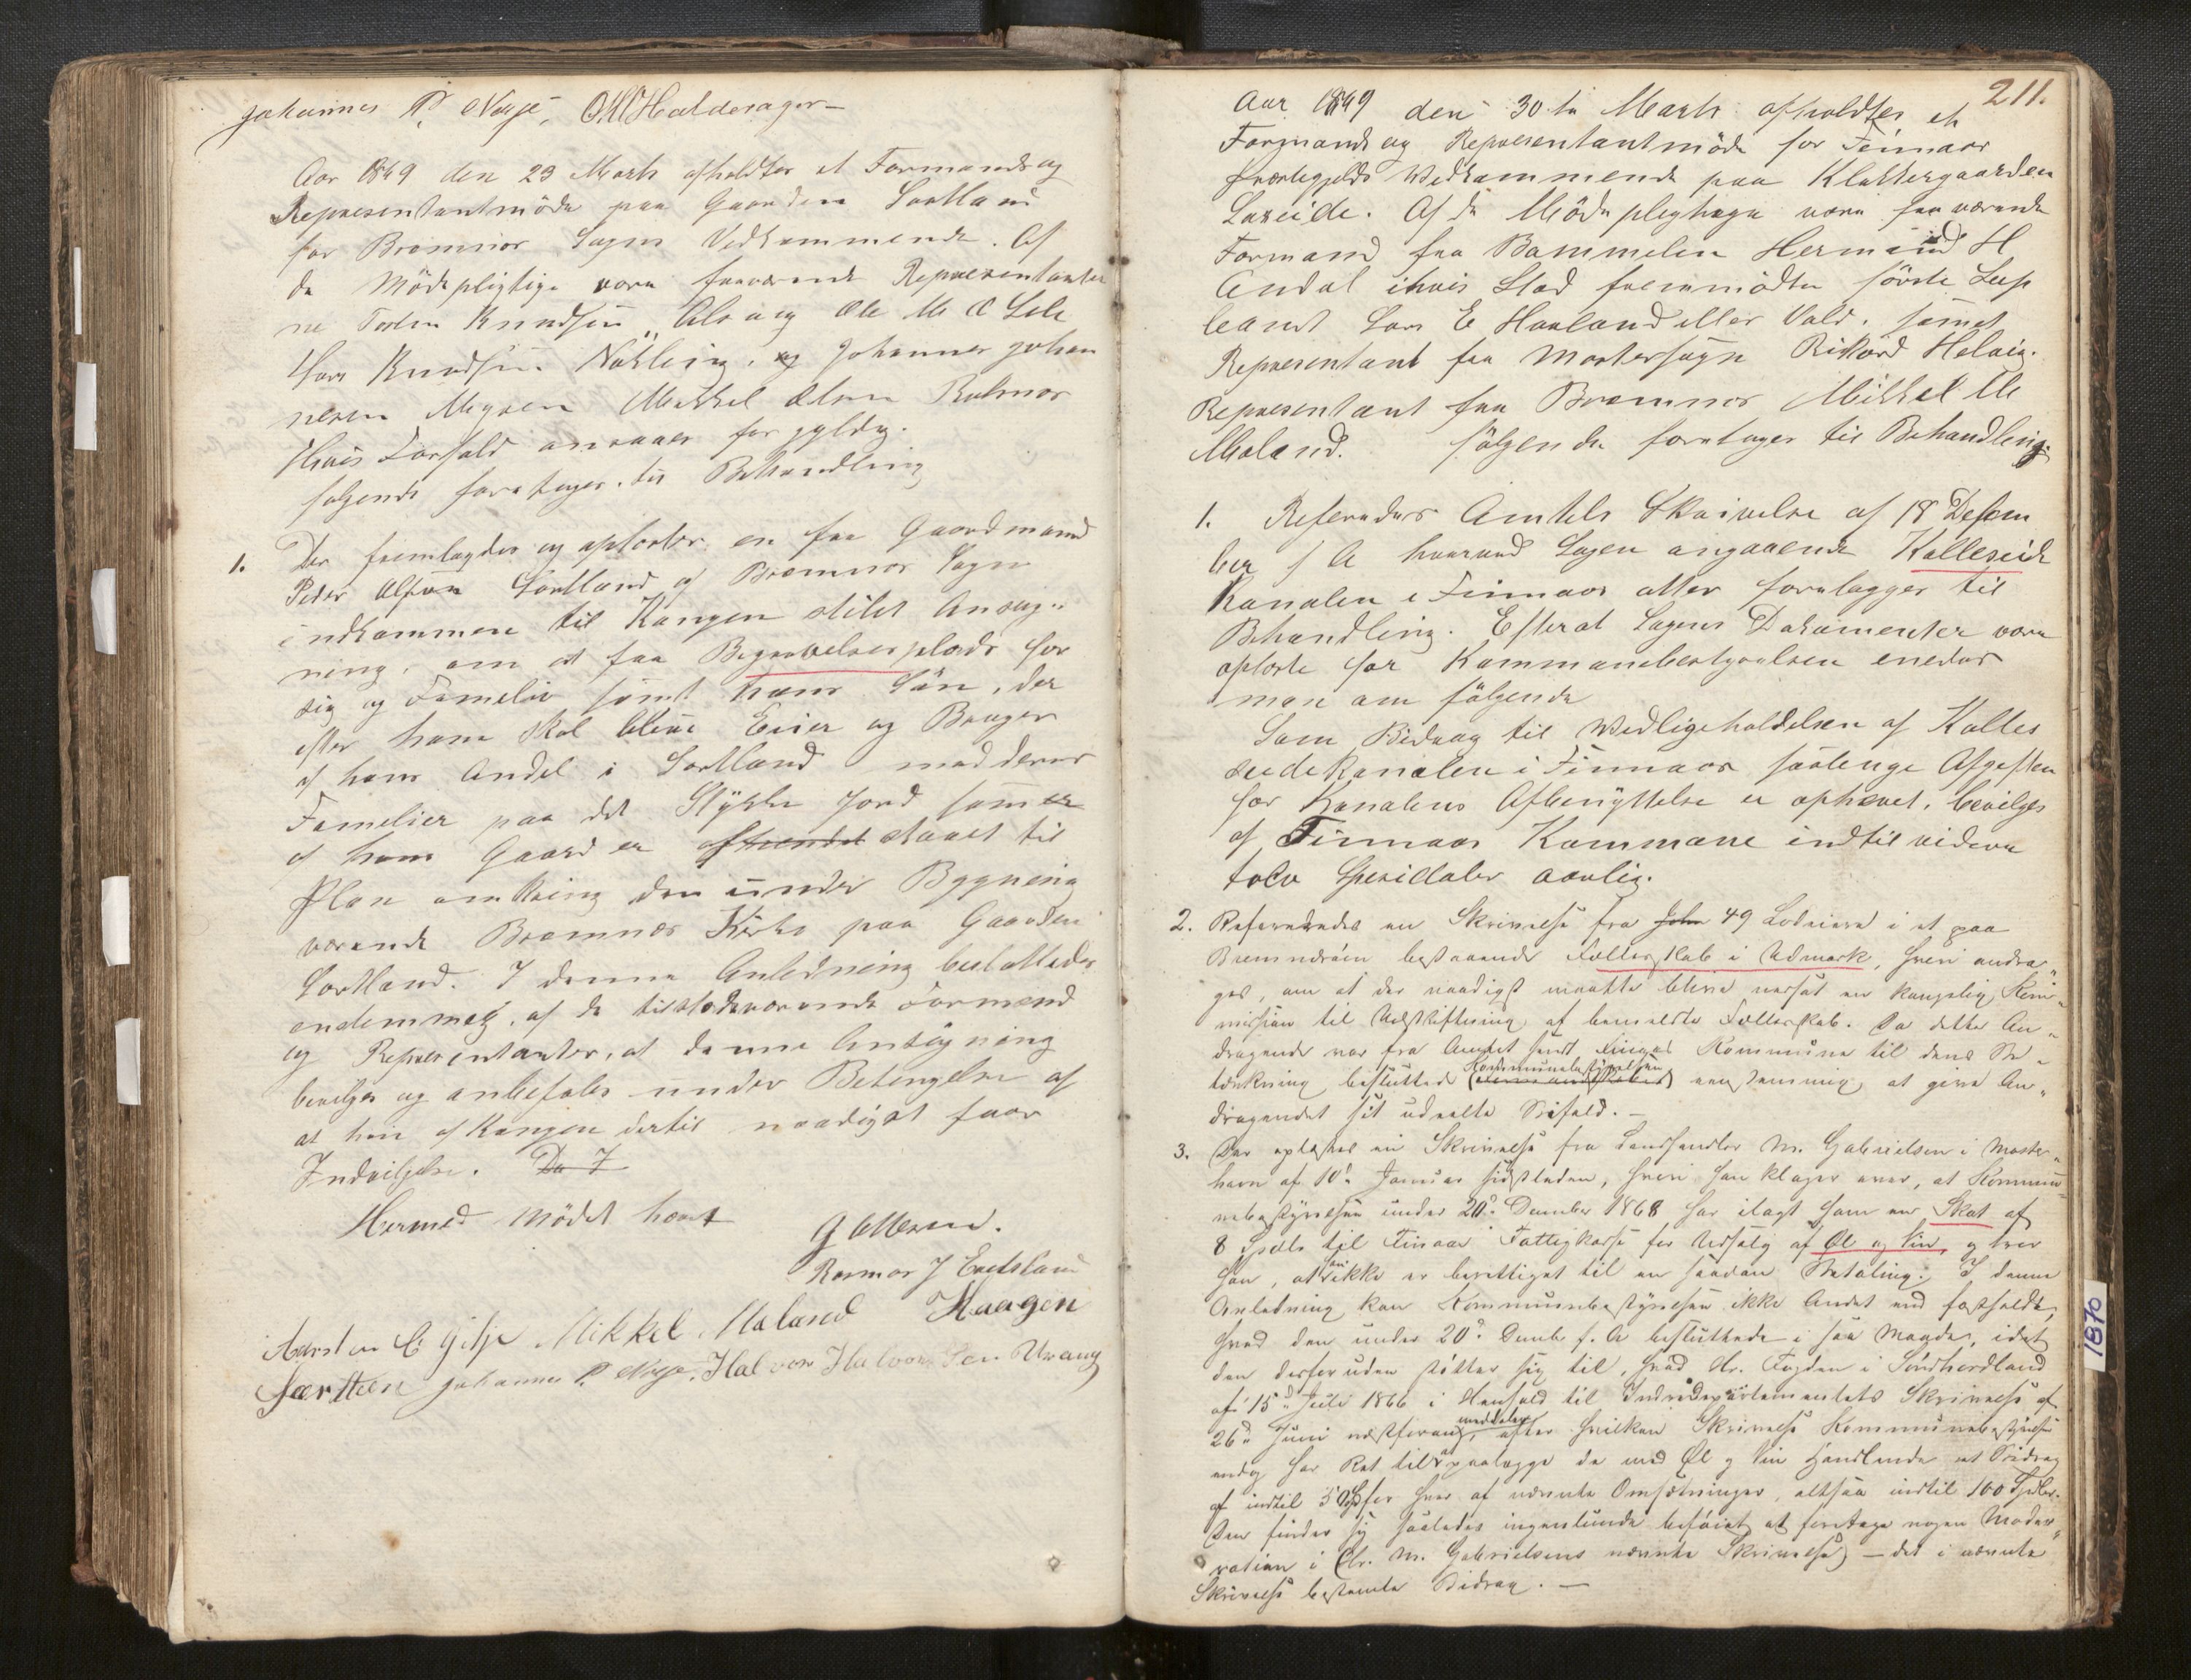 Johannes P. Nesje, O M Halderager
Aar 1849 den 23 Marts afholdtes et Formands og
Representantmöde paa Gaarden Sortland
for Bremnes Sogns Vedkommende. Af
de Mödepligtige vare fraværende Representanter
ne Torsten Knudsen, Ole M
Knudsen Nökling, og Johannes Johan
nesen Mikkel Olsen
Hvis Forfald ansaaes for gyldig.
fölgende foretages til Behandling
1. Der fremlagdes og oplæstes en fra Gaardmand
Peder Sortland af Bremnes Sogn
indkommen til Kongen stilet Ansøg„
ning, om at faa Begravelsesplads for
sig og Familie samt hans Sön, der
efter ham skal blive Eier og Bruger
af hans Andel i Sortland med deres
Familier paa det Stykke Jord som er
af hans Gaard er afhændet skaaet til
Plan omkring den under Bygning
værende Bremnes Kirke paa Gaarden
Sortland. I denne Anledning besluttedes
endemmeg, af de tilstedeværende Formænd
og Representanter, at denne Ansögning
bevilges og anbefales under Betingelse af
at han af Kongen dertil naadigst faar
Indvilgelse. Da I
Hermed Mödet hævt
G Ottesen.
Rasmus J Eidesland
Haagen
Torsten C Gilje Mikkel Maland
Særsteen Johannes P. Nesje. Halvor Halvorsen Urang
211.
Aar 1849 den 30te Marts afholdtes et
Formands og Representantmöde for Finnaas
Præstegjelds Vedkommende paa Klokkergaarden
Løxeide. Af de Mödepligtige vare fraværende
Formand fra Bømmelen Hermund H
Andal i hvis Sted fremmödte förste Sup
leant Lars E Hovland eller Vold. samt
Representant fra Mostersogn Rikard Helvig.
Representant fra Bremnes Mikkel M
Moland. fölgende foretages til Behandling.
1. Refereredes Amtets Skrivelse af 18 Desem
ber f A hvorved Sagen angaaende Kalleseid
Kanalen i Finnaas atter forelegges til
Behandling. Efterat Sagens Dokumenter vare
oplæste for Kommunebestyrelsen enedes
man om fölgende
Som Bidrag til Wedligeholdelsen af Kalles
eidekanalen i Finnaas saalenge Afgiften
for Kanalens Afbenyttelse er ophævet, bevilges
af Finnaas Kommune indtil videre
tolv Spesidaler aarlig.
2. Refereredes en Skrivelse fra John 49 Lodeiere i et paa
Bremnesøen bestaaende Fællesskab i Udmark, hvori andra„
ges, om at der naadigst maatte blive nedsat en kongelig Kom„
mission til Udskiftning af bemeldte Fællesskab. Da dette An„
dragende var fra Amtet sendt Finaas Kommune til dens Be„
tænkning, besluttede Kommunebestyrelsen eenstemmig at give An„
dragendet sit udeelte Bifald. —
3. Der oplæstes en Skrivelse fra Landhandler M. Gabrielsen i Moster„
havn af 10de Januar sidstleden, hvori han klager over, at Kommu„
nebestyrelsen under 20de December 1868 har ilagt ham en Skat af
8 Spdlr til Finaas Fattigkasse for Udsalg af Øl og Vin, og tror
han, at man ikke er berettiget til en saadan Betaling. I denne
Anledning kan Kommunebestyrelsen ikke Andet end fastholde,
hvad den under 20de Decemb. f. A besluttede i saa Maade, idet
den desforuden støtter sig til, hvad Hr. Fogden i Søndhordland
af 15de Juli 1866 i Henhold til Indredepartementets Skrivelse af
26de Juni næstforan, meddeler, efter hvilken Skrivelse Kommunebestyrelsen
endog har Ret til at paalægge de med Øl og Vin Handlende et Bidrag
af indtil 50 Spd for hver af nævnte Omsætninger, altsaa indtil 100 Spdlr.
Den finder sig saaledes ingenlunde beføiet at foretage nogen Mode„
ration i Hr. M. Gabrielsens nævnte Skrivelse — det i nævnte
Skrivelse bestemte Bidrag. —
1870